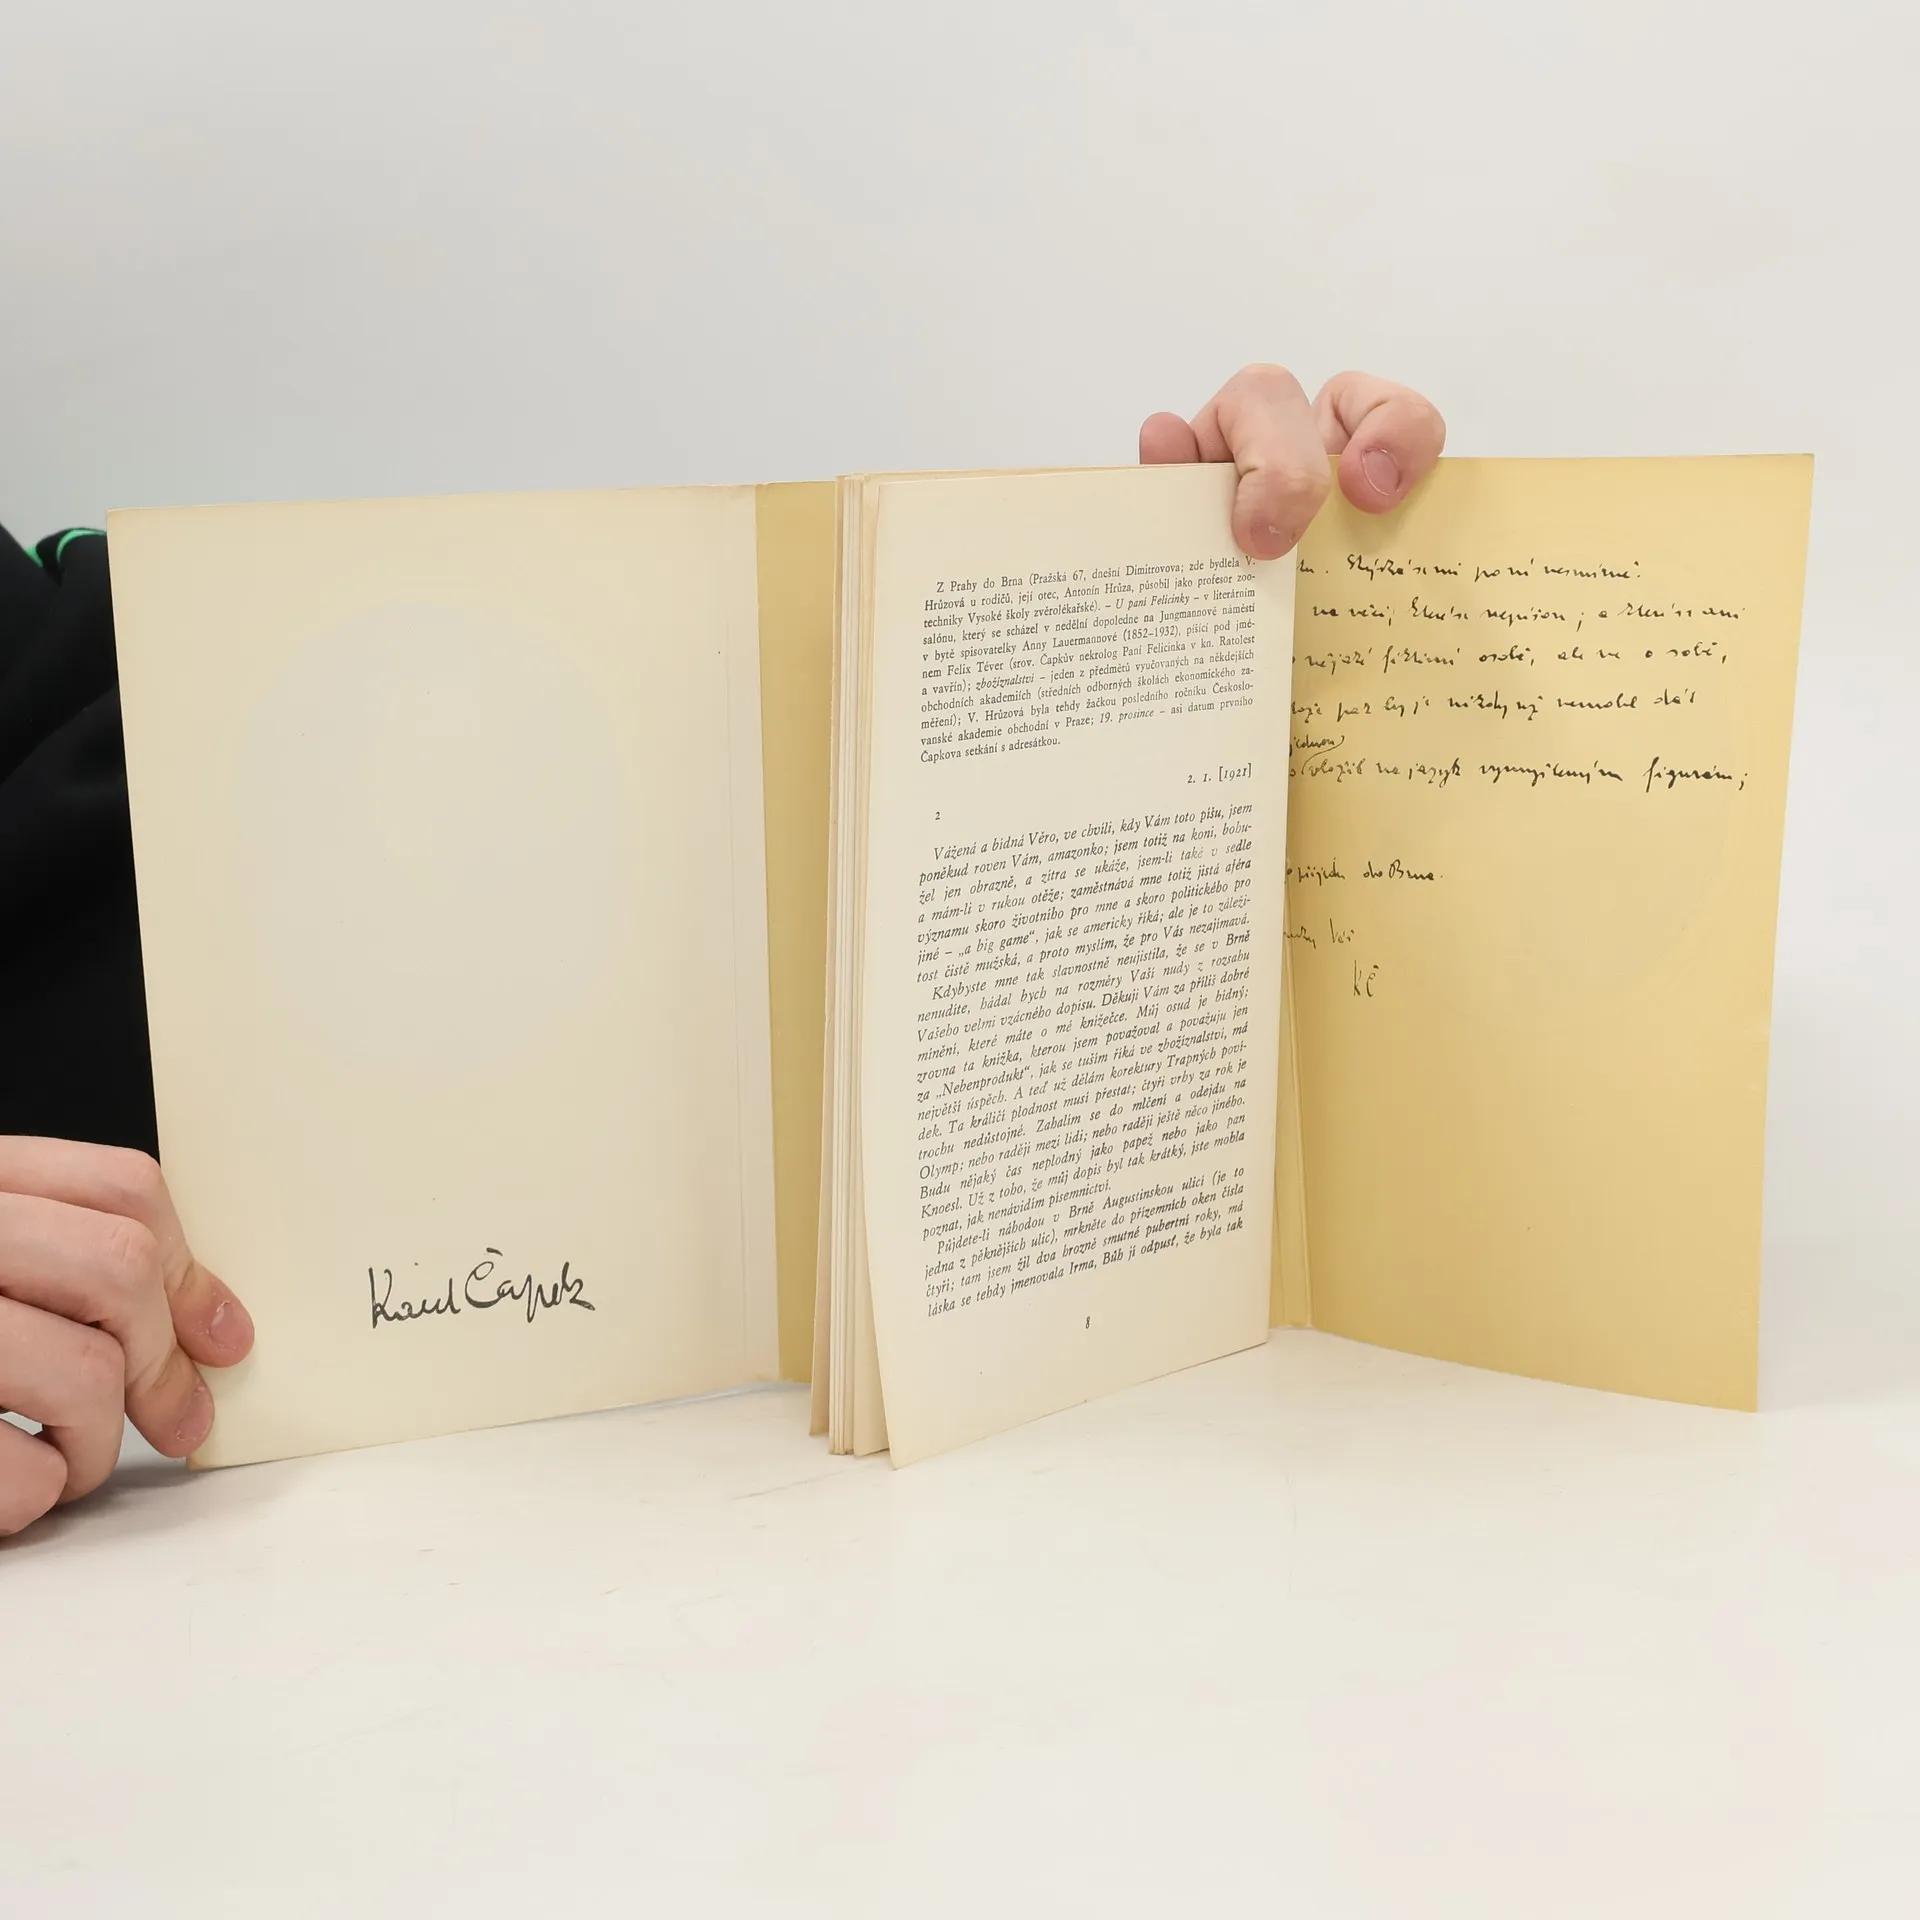 Karel Čapek
Z Prahy do Brna (Pražská 67, dnešní Dimitrovova; zde bydlela V.
Hrůzová u rodičů, její otec, Antonín Hrůza, působil jako profesor zoo-
techniky Vysoké školy zvěrolékařské). – U paní Felicinky – v literárním
salónu, který se scházel v nedělní dopoledne na Jungmannově náměstí
v bytě spisovatelky Anny Lauermannové (1852–1932), píšící pod jmé-
nem Felix Téver (srov. Čapkův nekrolog Paní Felicinka v kn. Ratolest
a vavřín); zbožíznalství – jeden z předmětů vyučovaných na někdejších
obchodních akademiích (středních odborných školách ekonomického za-
měření); V. Hrůzová byla tehdy žačkou posledního ročníku Českoslo-
vanské akademie obchodní v Praze; 19. prosince – asi datum prvního
Čapkova setkání s adresátkou.
2. 1. [1921]
2
Vážená a bídná Věro, ve chvíli, kdy Vám toto píšu, jsem
poněkud roven Vám, amazonko; jsem totiž na koni, bohu-
žel jen obrazně, a zítra se ukáže, jsem-li také v sedle
a mám-li v rukou otěže; zaměstnává mne totiž jistá aféra
významu skoro životního pro mne a skoro politického pro
jiné – „a big game“, jak se americky říká; ale je to záleži-
tost čistě mužská, a proto myslím, že pro Vás nezajímavá.
Kdybyste mne tak slavnostně neujistila, že se v Brně
nenudíte, hádal bych na rozměry Vaší nudy z rozsahu
Vašeho velmi vzácného dopisu. Děkuji Vám za příliš dobré
mínění, které máte o mé knížečce. Můj osud je bídný;
zrovna ta knížka, kterou jsem považoval a považuju jen
za „Nebenprodukt“, jak se tuším říká ve zbožíznalství, má
největší úspěch. A teď už dělám korektury Trapných poví-
dek. Ta králičí plodnost musí přestat; čtyři vrhy za rok je
trochu nedůstojné. Zahalím se do mlčení a odejdu na
Olymp; nebo raději mezi lidi; nebo raději ještě něco jiného.
Budu nějaký čas neplodný jako papež nebo jako pan
Knoesl. Už z toho, že můj dopis byl tak krátký, jste mohla
poznat, jak nenávidím písemnictví.
Půjdete-li náhodou v Brně Augustinskou ulicí (je to
jedna z pěknějších ulic), mrkněte do přízemních oken čísla
čtyři; tam jsem žil dva hrozně smutné pubertní roky, má
láska se tehdy jmenovala Irma, Bůh jí odpusť, že byla tak
8
Stýská se mi po ní nesmírně.
na věci, které se nepíšou; a které se ani
nějaké fiktivní osobě, ale ne o sobě,
pak by je nikdy už nemohl dát
vložil na jazyk vymyšleným figurám;
přijedu do Brna.
Váš
KČ